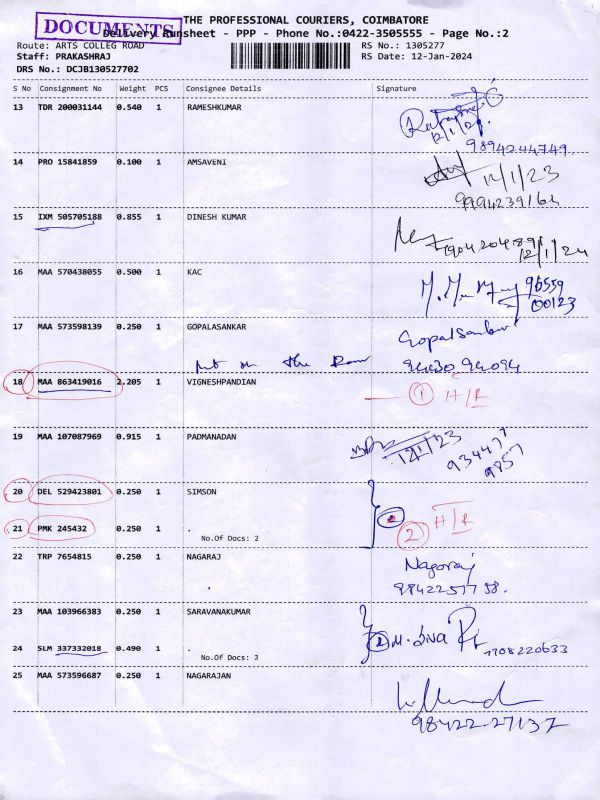 DOCUMENTS
THE PROFESSIONAL COURIERS, COIMBATORE
Delivery Runsheet - PPP - Phone No.:0422-3505555 - Page No.:2
Route: ARTS COLLEG ROAD
RS No.: 1305277
Staff: PRAKASHRAJ
RS Date: 12-Jan-2024
DRS No.: DCJB130527702
S No Consignment No Weight PCS Consignee Details Signature
13 TDR 200031144 0.540 1 RAMESHKUMAR
12/1/24
9894244749.
14 PRO 15841859 0.100 1 AMSAVENI
12/1/23
15 IXM 505705188 0.855 1 DINESH KUMAR
12/1/24
16 MAA 570438055 0.500 1 KAC
96559
00123
17 MAA 573598139 0.250 1 GOPALASANKAR
Gopalsankar
94420 94094
not in the Room
18 MAA 863419016 2.205 1 VIGNESHPANDIAN
1 H/R
19 MAA 107087969 0.915 1 PADMANADAN
12/1/23
93447
9857
20 DEL 529423801 0.250 1 SIMSON
21 PMK 245432 0.250 1 .
2 H/R
No.Of Docs: 2
22 TRP 7654815 0.250 1 NAGARAJ
Nagaraj
9842251758.
23 MAA 103966383 0.250 1 SARAVANAKUMAR
2 M. Siva
24 SLM 337332018 0.490 1 .
No.Of Docs: 2
25 MAA 573596687 0.250 1 NAGARAJAN
98422-27137